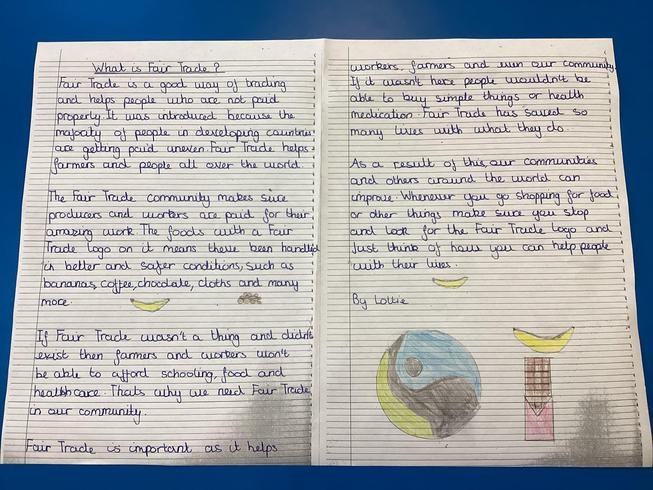 What is Fair Trade?
Fair Trade is a good way of trading
and helps people who are not paid
properly. It was introduced because the
majority of people in developing countries
are getting paid uneven. Fair Trade helps
farmers and people all over the world.
The Fair Trade community makes sure
producers and workers are paid for their
amazing work. The foods with a Fair
Trade logo on it means there been handled
in better and safer conditions, such as
bananas, coffee, chocolate, cloths and many
more.
If Fair Trade wasn't a thing and didn't
exist then farmers and workers won't
be able to afford schooling, food and
healthcare. Thats why we need Fair Trade
in our community.
Fair Trade is important as it helps
workers, farmers and even our community.
If it wasn't here people wouldn't be
able to buy simple things or health
medication. Fair Trade has saved so
many lives with what they do.
As a result of this, our communities
and others around the world can
improve. Whenever you go shopping for food
or other things make sure you stop
and look for the Fair Trade logo and
Just think of how you can help people
with their lives.
By Lottie